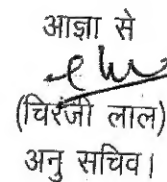 आज्ञा से
(चिरंजी लाल)
अनु सचिव।